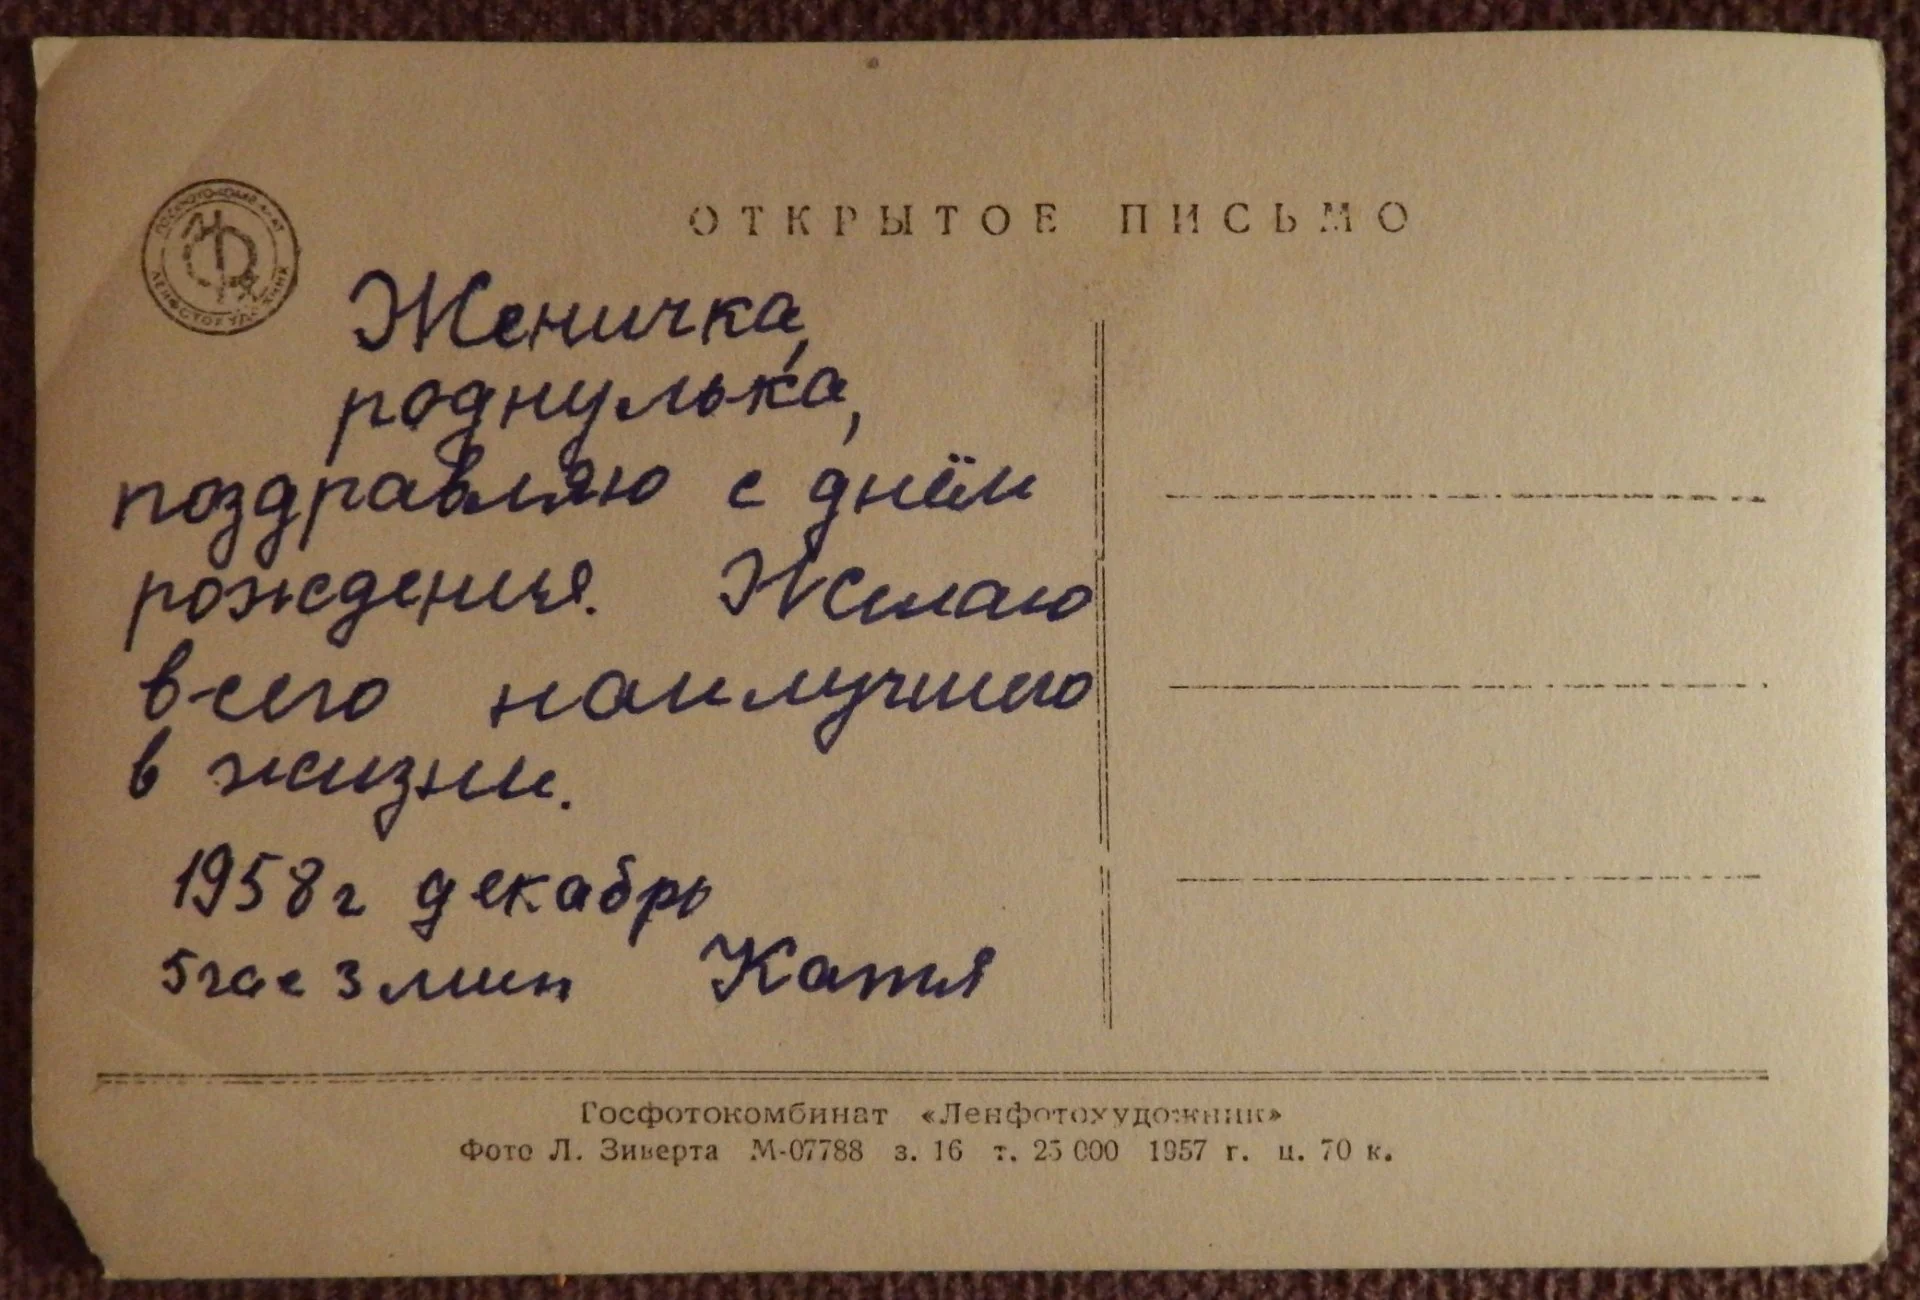 ОТКРЫТОЕ ПИСЬМО
ГОСФОТОКОМБИНАТ
ЛЕНФОТОХУДОЖНИК
Женичка,
роднулька,
поздравляю с днём
рождения. Желаю
всего наилучшего
в жизни.
1958г декабрь
5час 3мин Катя
Госфотокомбинат «Ленфотохудожник»
Фото Л. Зиверта М-07788 з. 16 т. 25 000 1957 г. ц. 70 к.